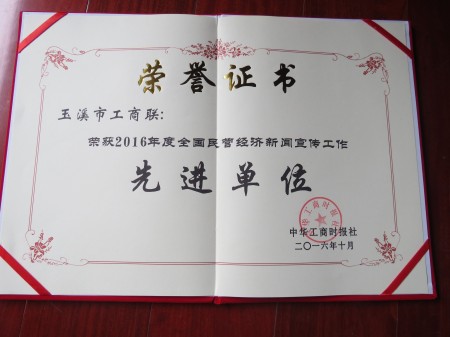 荣誉证书
玉溪市工商联:
荣获2016年度全国民营经济新闻宣传工作
先进单位
中华工商时报社
二〇一六年十月